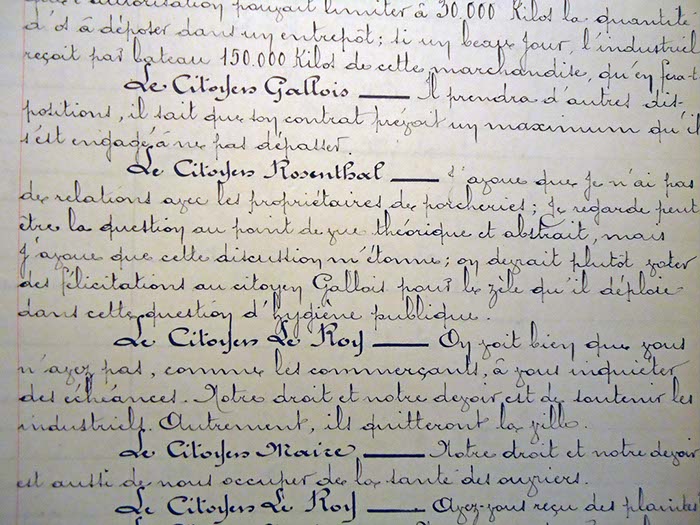 que l'autorisation pouvait limiter à 30.000 Kilos la quantité
d'os à déposer dans un entrepôt; si un beau jour, l'industriel
reçoit par bateau 150.000 Kilos de cette marchandise, qu'en fera-t
Le Citoyen Gallois — Il prendra d'autres dis-
positions, il sait que son contrat prévoit un maximum qu'il
s'est engagé à ne pas dépasser.
Le Citoyen Rosenthal — J'avoue que je n'ai pas
de relations avec les propriétaires de porcheries; Je regarde peut
être la question au point de vue théorique et abstrait, mais
j'avoue que cette discussion m'étonne; on devrait plutôt voter
des félicitations au citoyen Gallois pour le zèle qu'il déploie
dans cette question d'hygiène publique.
Le Citoyen Le Roy — On voit bien que vous
n'avez pas, comme les commerçants, à vous inquiéter
des échéances. Notre droit et notre devoir est de soutenir les
industriels. Autrement, ils quitteront la ville.
Le Citoyen Maire — Notre droit et notre devoir
est aussi de nous occuper de la santé des ouvriers.
Le Citoyen Le Roy — Avez-vous reçu des plaintes